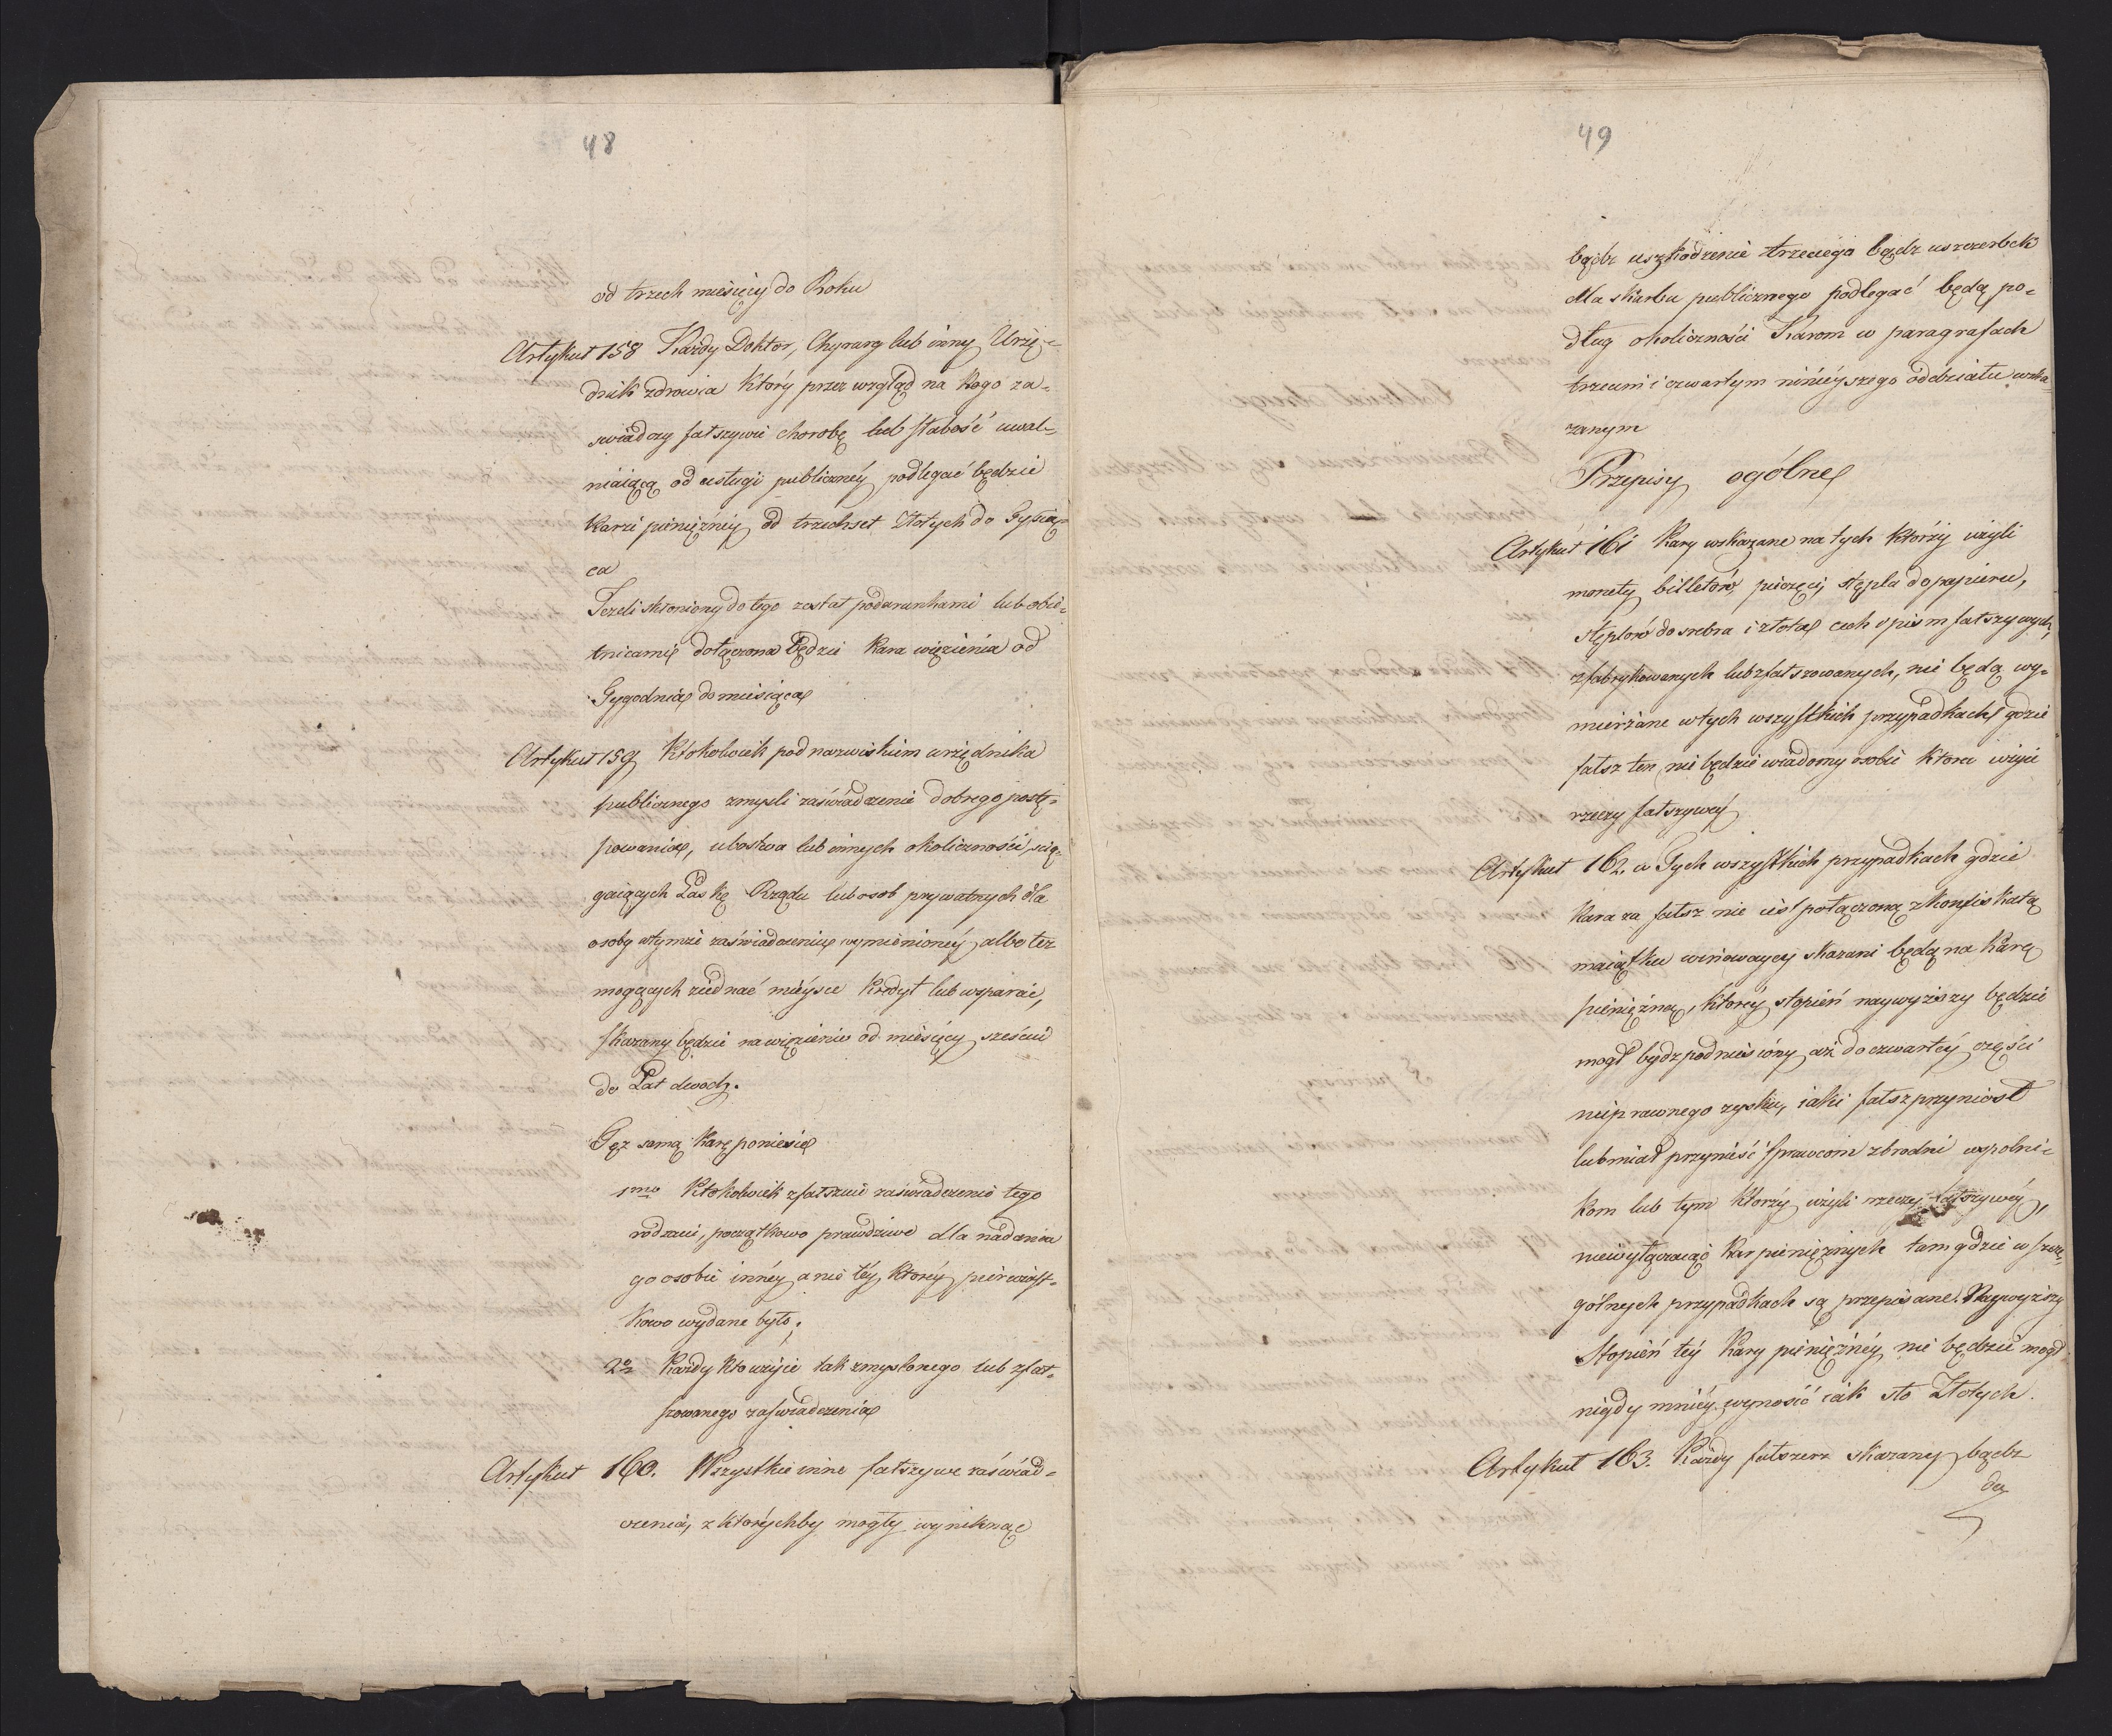 48
od trzech miesięcy do Roku
Artykuł 158 Każdy Doktor, Chyrurg lub inny Urzę-
dnik zdrowia który przez wzgląd na kogo za-
swiadczy fałszywie chorobę lub słabość uwal-
niaiącą od usługi publicznéy podlegać będzie
karze pieniężnéy od trzechset Złotych do Tysią-
ca
Jeżeli skłoniony do tego został podarunkami lub obie-
tnicami dołączona będzie kara więzienia od
Tygodnia do miesiąca
Artykuł 159 Ktokolwiek pod nazwiskiem urzędnika
publicznego zmyśli zaświadczenie dobrego postę-
powania, ubostwa lub innych okoliczności, ścią-
gaiących Łaskę Rządu lub osob prywatnych dla
osoby wtymże zaświadczeniu wymienionéy, albo też
mogących ziednać miéysce kredyt lub wsparcie,
skazany będzie na więzienie od miesięcy sześciu
do Lat dwoch.
Tęż samą karę poniesie
1mo Ktokolwiek zfałszuie zaświadczenie tego
rodzaiu, początkowo prawdziwe dla nadania
go osobie innéy a nie téy, któréy pierwiast-
kowo wydane było;
2o Każdy kto użyie tak zmyslonego lub zfał-
szowanego zaświadczenia
Artykuł 160. Wszystkie inne fałszywe zaświad-
czenia, z którychby mogły wyniknąć
49
bądź uszkodzenie trzeciego bądź uszczerbek
dla skarbu publicznego podlegać będą po-
dług okoliczności Karom w paragrafach
trzecim i czwartym ninieyszego oddziału wska-
zanym
Przepisy ogólne
Artykuł 161 Kary wskazane na tych którzy użyli
monety, billetów, pieczęci, stępla do papieru,
stęplow do srebra i złota cech i pism fałszywych,
zfabrykowanych lub zfałszowanych, nie będą wy-
mierzane wtych wszystkich przypadkach gdzie
fałsz ten nie będzie wiadomy osobie która użyie
rzeczy fałszywéy
Artykuł 162. w Tych wszystkich przypadkach gdzie
kara za fałsz nie iest połączoną z konfiskatą
maiątku winowaycy skazani będą na karę
pieniężną, któréy stopień naywyższy będzie
mogł bydz podniesiony aż do czwartéy części
nieprawnego zysku, iaki fałsz przyniosł
lub miał przynieść sprawcom zbrodni wspolni-
kom lub tym którzy użyli rzeczy fałszywéy,
niewyłączaiąc kar pieniężnych tam gdzie w szcze-
gólnych przypadkach są przepisane. Naywyższy
Stopień téy Kary pieniężnéy nie będzie mogł
nigdy mniéy wynosić iak sto Złotych.
Artykuł 163. Każdy fałszerz skazany bądź
da